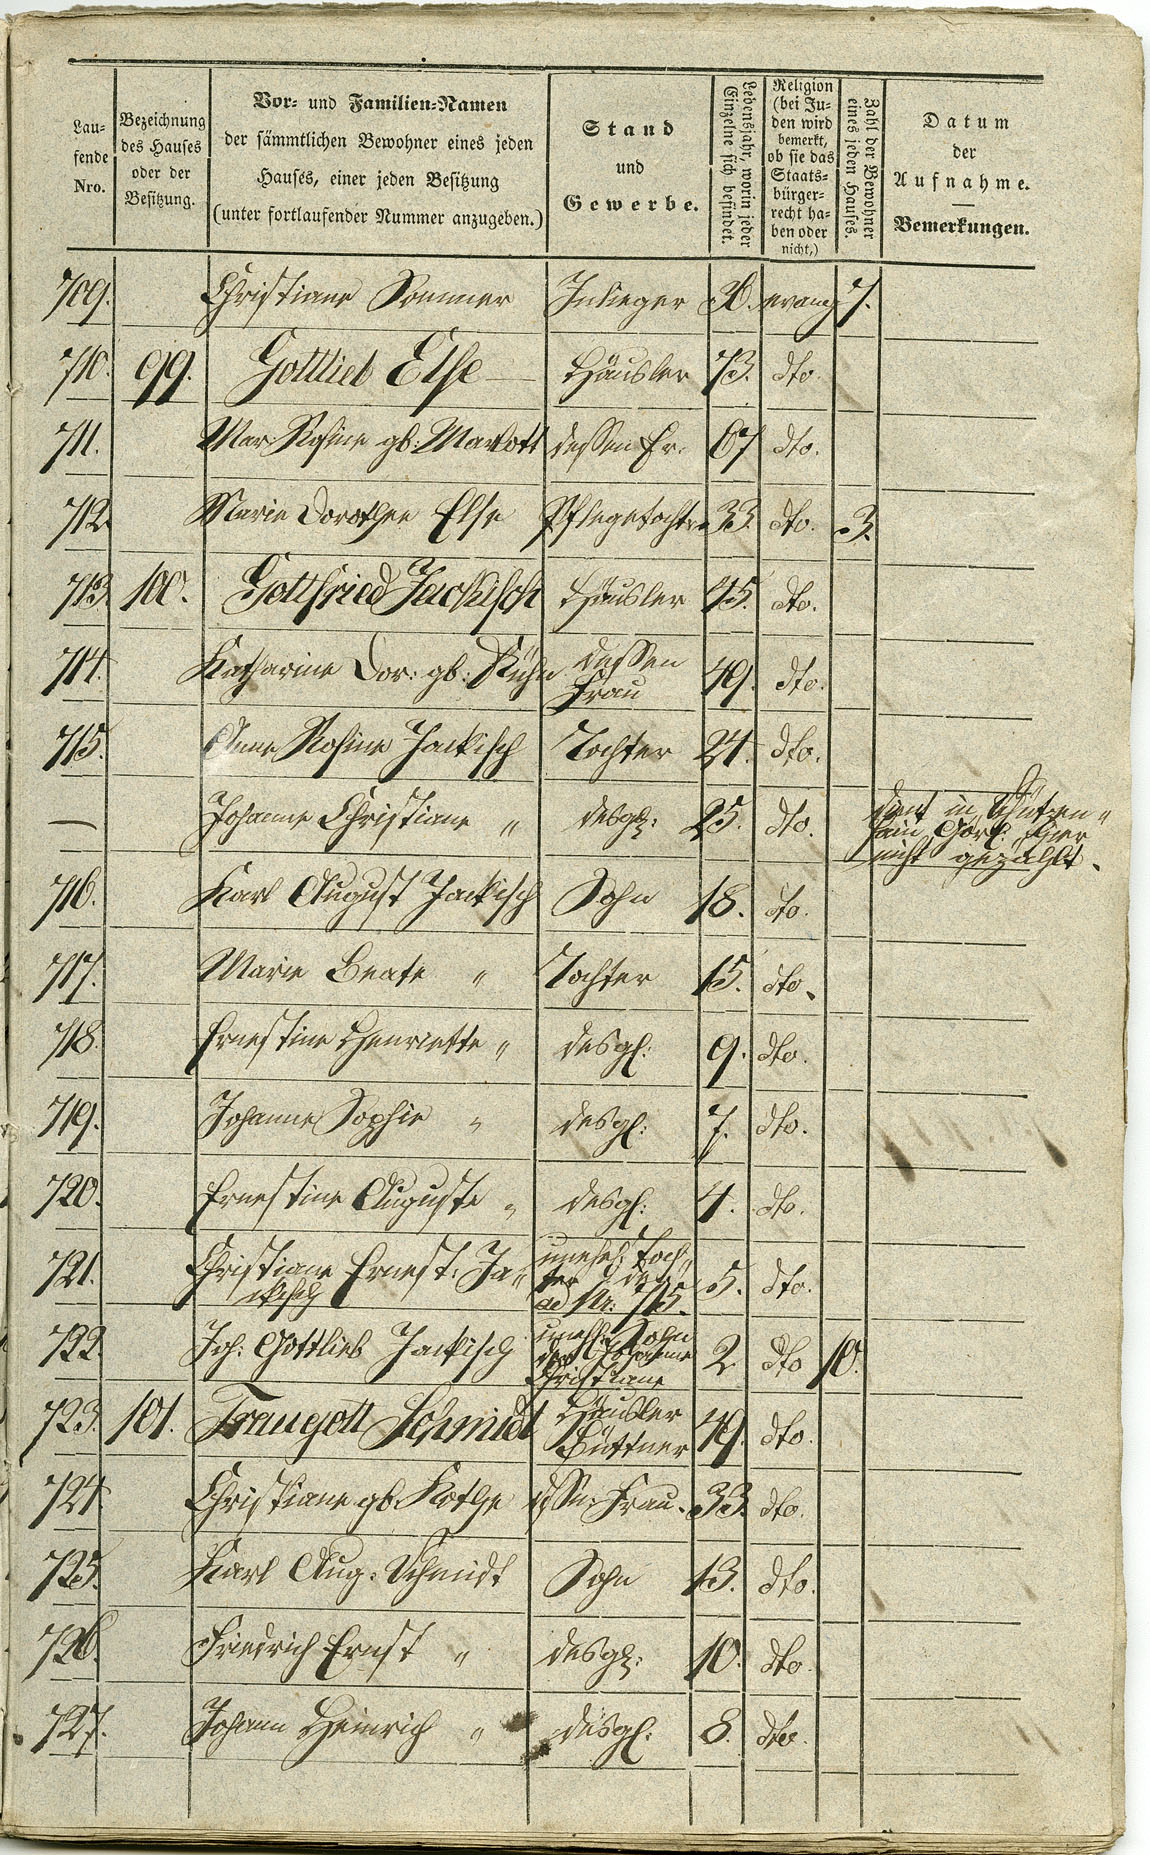 Lau-
fende
Nro.
Bezeichnung
des Hauses
oder der
Besitzung.
Vor- und Familien-Namen
der sämmtlichen Bewohner eines jeden
Hauses, einer jeden Besitzung
(unter fortlaufender Nummer anzugeben.)
Stand
und
Gewerbe.
Lebensjahr, worin jeder
Einzelne sich befindet.
Religion
(bei Ju-
den wird
bemerkt,
ob sie das
Staats-
bürger-
recht ha-
ben oder
nicht.)
Zahl der Bewohner
eines jeden Hauses.
Datum
der
Aufnahme.
Bemerkungen.
709. Christiane Sommer Inlieger evang 7.
710. 99. Gottlieb Else Häusler 73. dto.
711. Mar. Rosine gb: Markott dessen Fr. 67 dto.
712 Marie Dorothee Else Pflegetochter 33. dto. 3.
713 100. Gottfried Jackisch Häusler 45. dto.
714. Katharine Dor: gb: Kühn dessen Frau 49. dto.
715. Anne Rosine Jackisch Tochter 24. dto.
— Johanne Christiane " desgl: 25. dto. dient in Schützen-
hain Görl: hier
nicht gezählt.
716. Karl August Jackisch Sohn 18. dto.
717. Marie Beate " Tochter 15. dto.
718. Ernestine Henriette " desgl: 9. dto.
719. Johanne Sophie " desgl: 7. dto.
720. Ernestine Auguste " desgl: 4. dto.
721. Christiane Ernest: Ja-
ckisch unehel: Toch-
ter der
ad Nr: 715. 5. dto.
722. Joh: Gottlieb Jackisch unehl: Sohn
der Johanne
Christiane 2. dto 10.
723. 101. Traugott Schmidt Häusler
Büttner 49. dto.
724. Christiane gb. Kothe dssn: Frau. 33. dto.
725. Karl Aug: Schmidt Sohn 13. dto.
726. Friedrich Ernst " desgl: 10. dto.
727. Johann Heinrich " desgl: 8. dto.